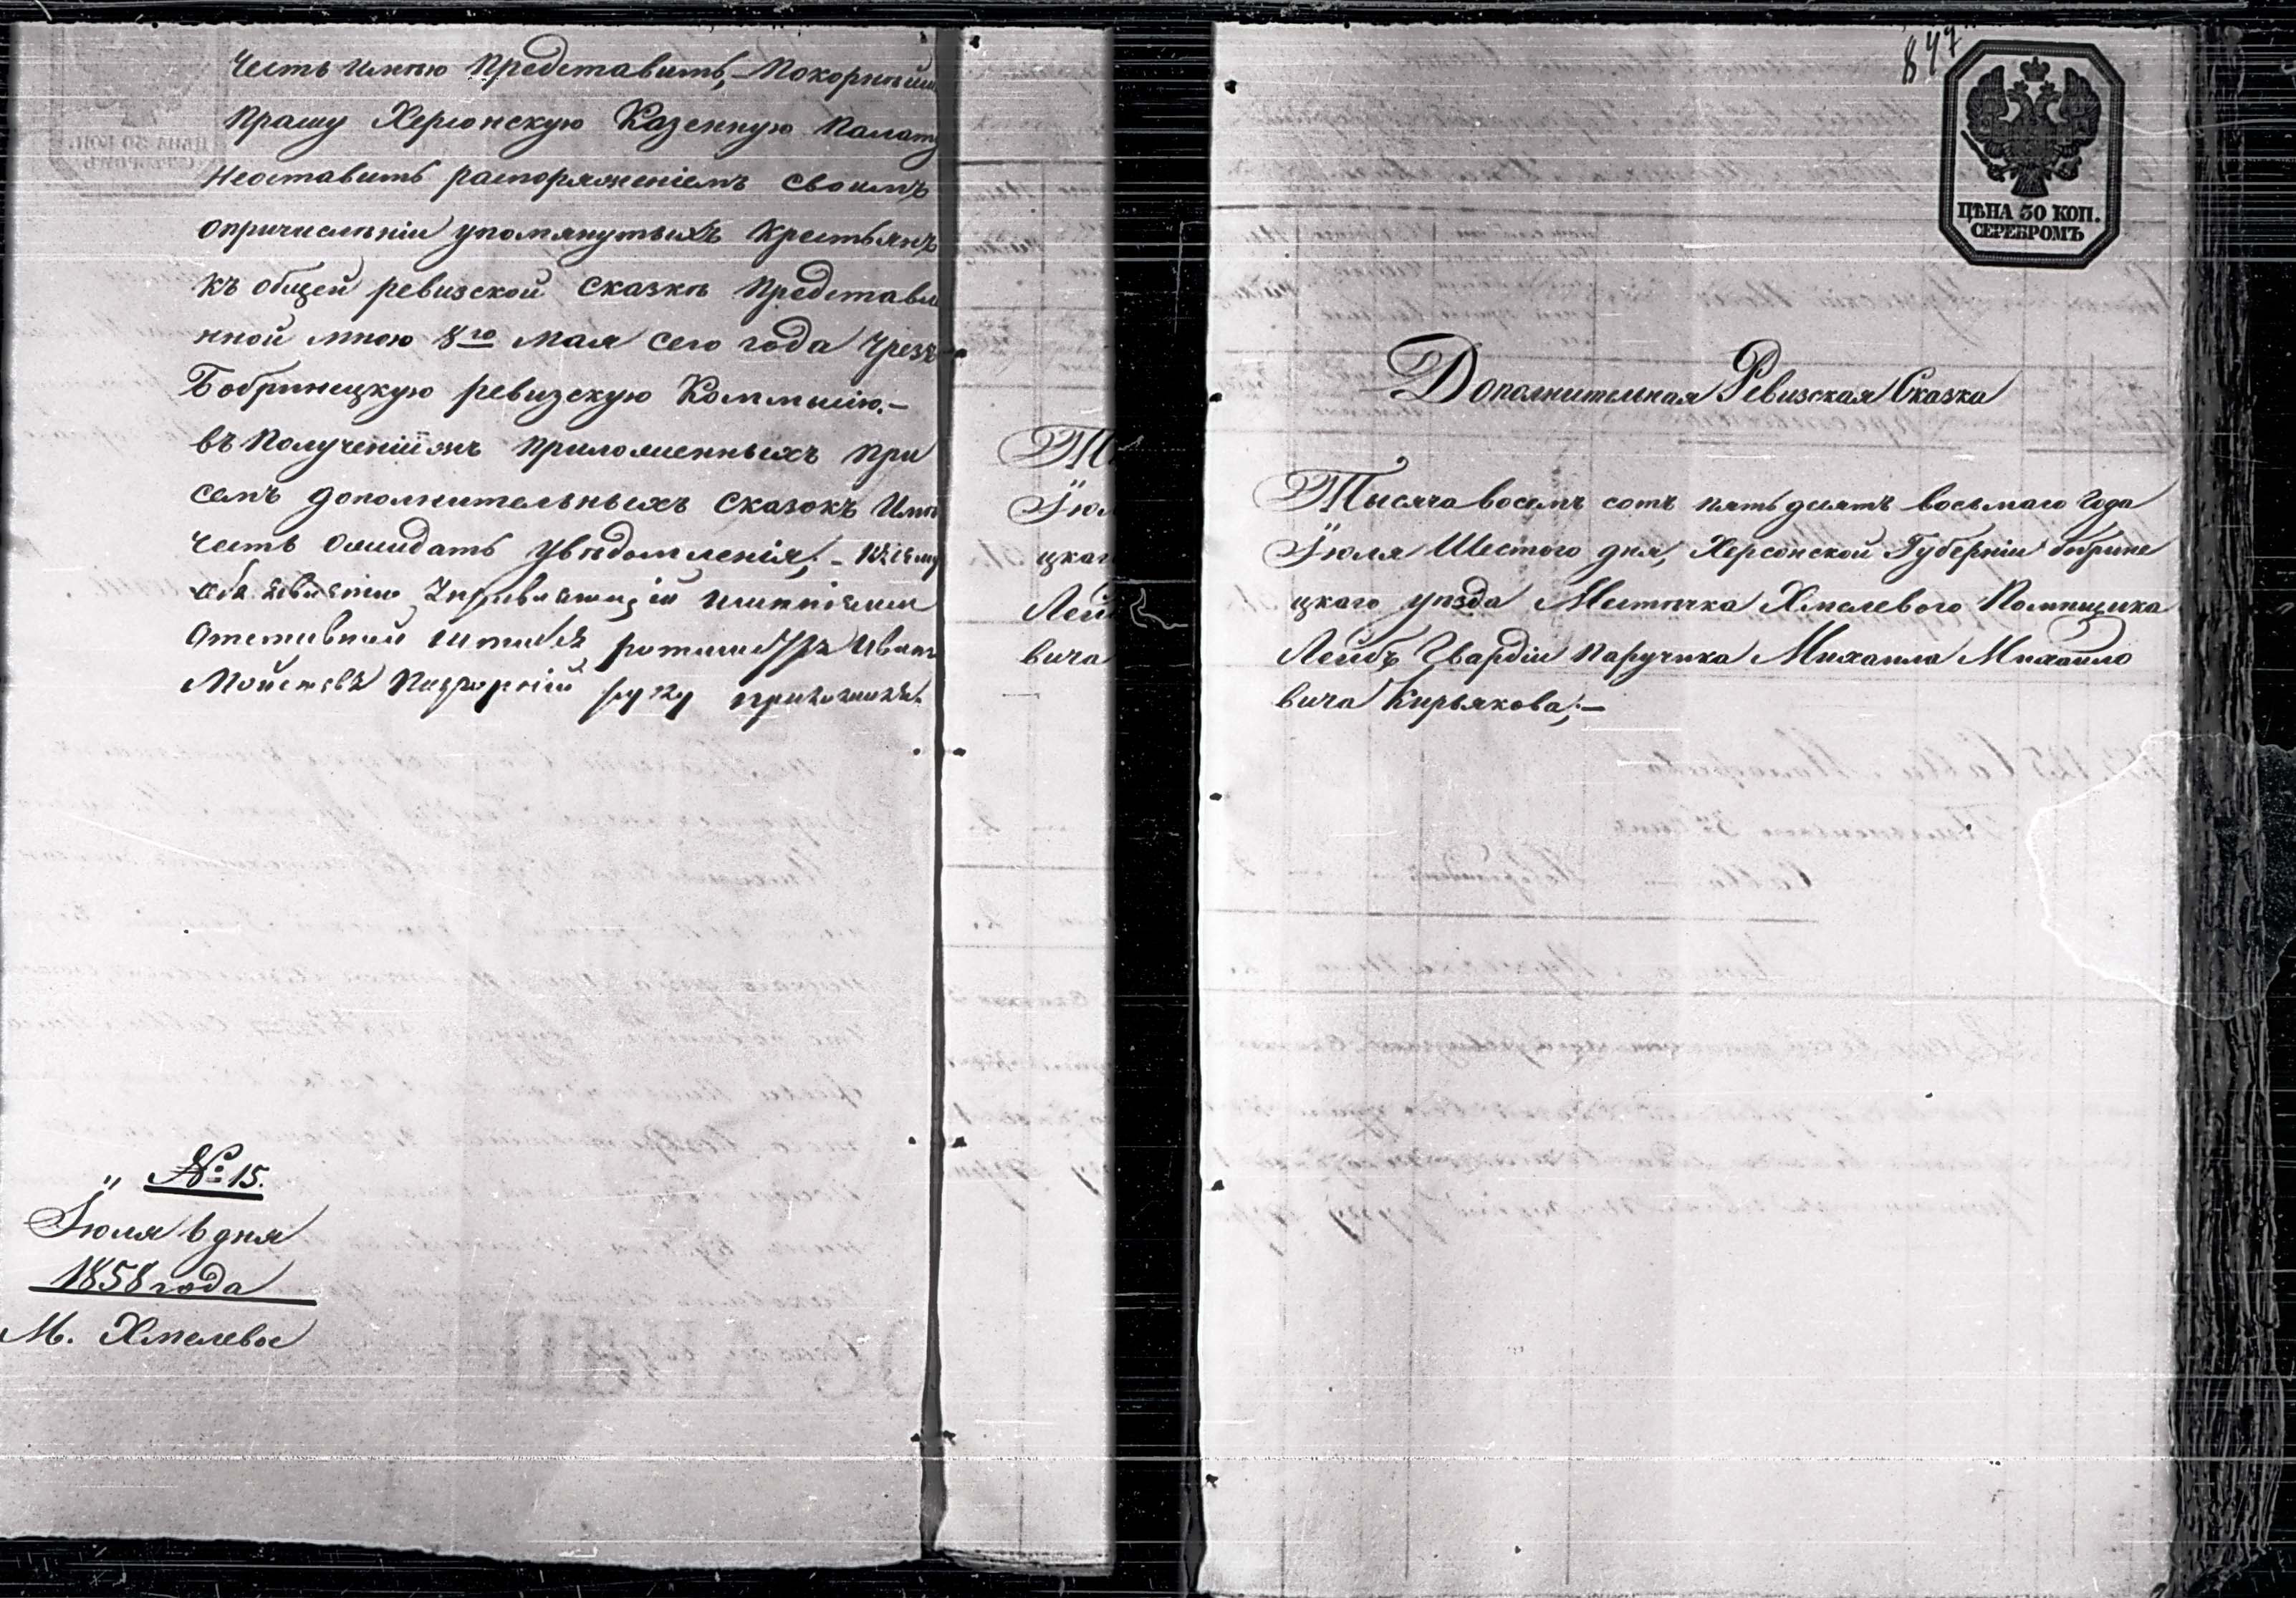 честь имѣю представить, – Покорнѣйш
прашу Херсонскую Казенную Палату
неоставить распоряженіемъ своимъ
опричисленіи упомянутыхъ крестьянъ
къ общей ревизской сказкѣ представле
нной мною 8го мая сего года чрезъ
Бобринецкую ревизскую Коммисію. –
въ Полученіи приложенныхъ при
семъ дополнительныхъ сказокъ имѣ
честь ожидать увѣдомленія; – къ сему
Управляющій имѣніемъ
отставной штабъ ротмистръ Иванъ
руку приложилъ.
№ 15.
Іюля 6 дня
1858 года
М. Хмелевое
Ты
Іюл
цкаг
Лей
вича
847
ЦѢНА 30 КОП.
СЕРЕБРОМЪ
Дополнительная Ревизская Сказка
Тысяча восемъ сотъ пять десятъ восьмаго года
Іюля Шестого дня, Херсонской Губерніи бобрине
цкаго уѣзда Местѣчка Хмелевого Помѣщика
Лейбъ Гвардіи Паручика Михаила Михайло
вича Кирьякова; –